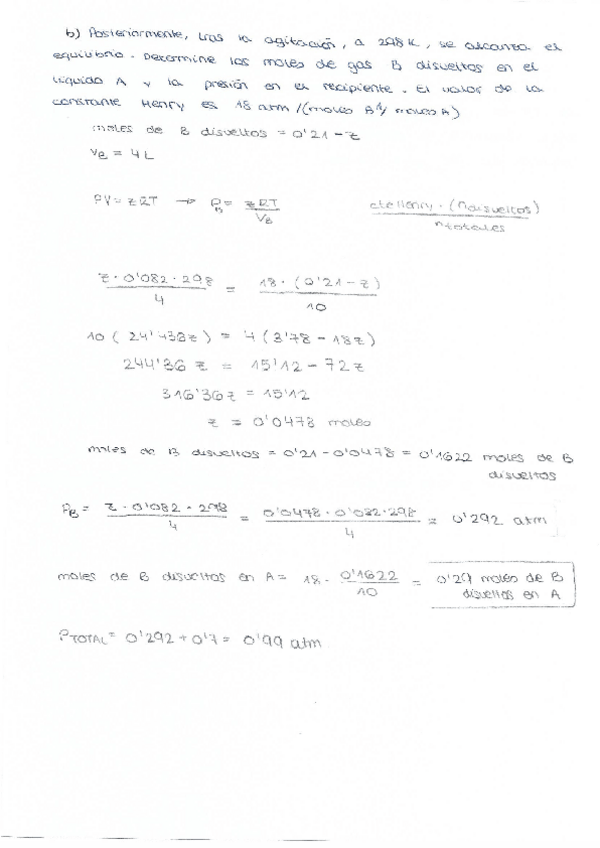 b) Posteriormente, tras la agitación, a 298 K, se alcanza el
equilibrio. Determine los moles de gas B disueltos en el
líquido A y la presión en el recipiente. El valor de la
constante Henry es 18 atm /(moles B / moles A)
moles de B disueltos = 0'21 - z
VB = 4 L
PV = zRT → PB = zRT / VB
cte Henry · (n disueltos) / n totales
z · 0'082 · 298 / 4 = 18 · (0'21 - z) / 10
10 ( 24'436z ) = 4 ( 3'78 - 18z )
244'36 z = 15'12 - 72z
316'36z = 15'12
z = 0'0478 moles
moles de B disueltos = 0'21 - 0'0478 = 0'1622 moles de B
disueltos
PB = z · 0'082 · 298 / 4 = 0'0478 · 0'082 · 298 / 4 = 0'292 atm
moles de B disueltos en A = 18 · 0'1622 / 10 = 0'29 moles de B
disueltos en A
PTOTAL = 0'292 + 0'7 = 0'99 atm